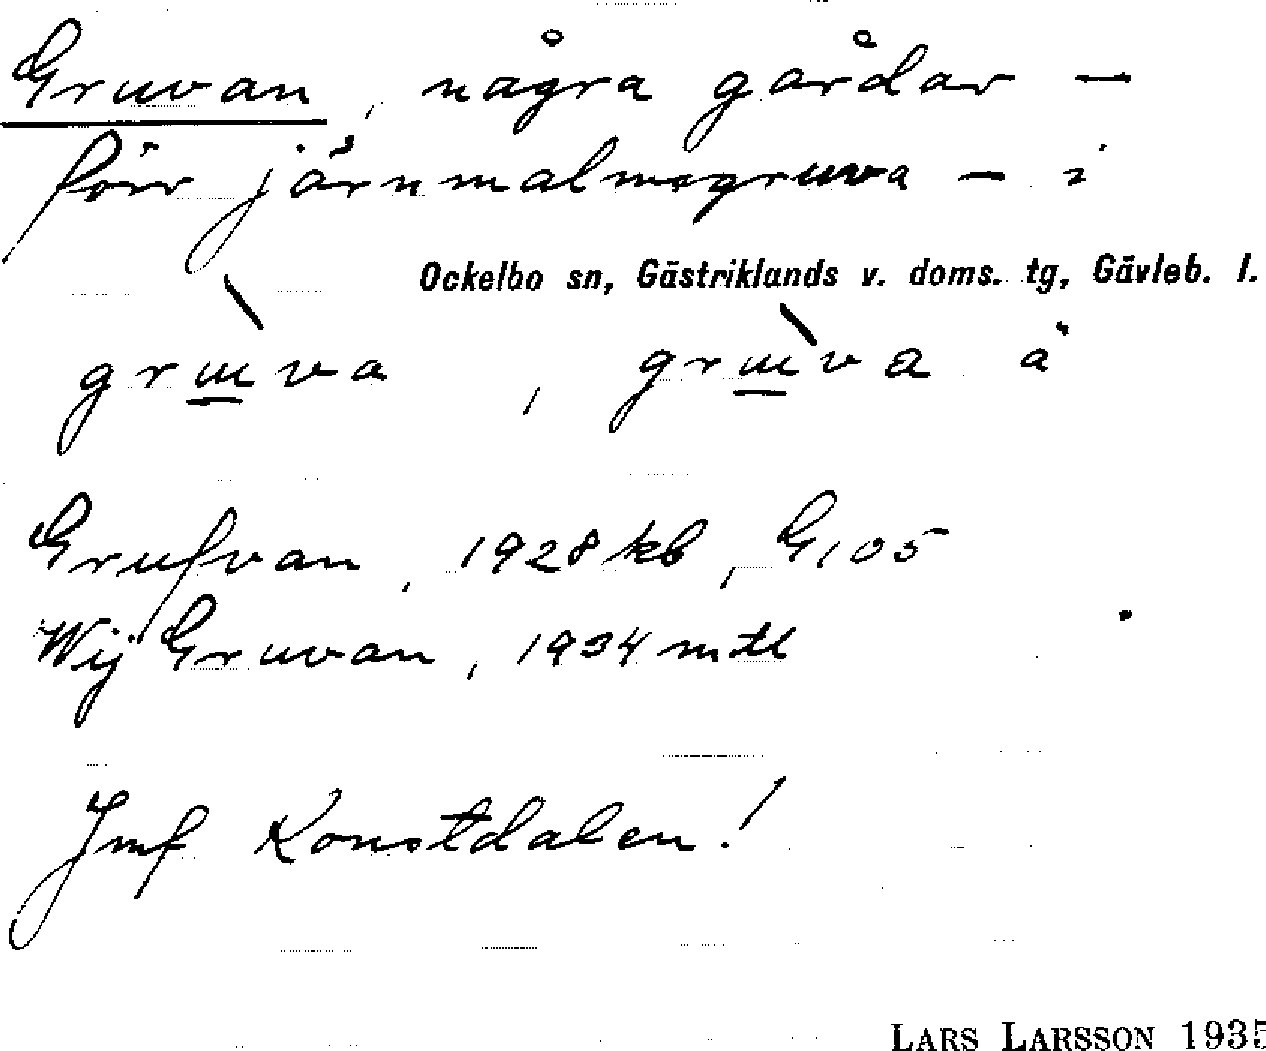 Gruvan, några gårdar –
förr järnmalmsgruva – i
Ockelbo sn, Gästriklands v. doms. tg, Gävleb. l.
grɯ̲̀va, grɯ̲̀va ä
Grufvan, 1928 kb, G105
Wij Gruvan, 1934 mtl
Jmf Konstdalen!
LARS LARSSON 1935